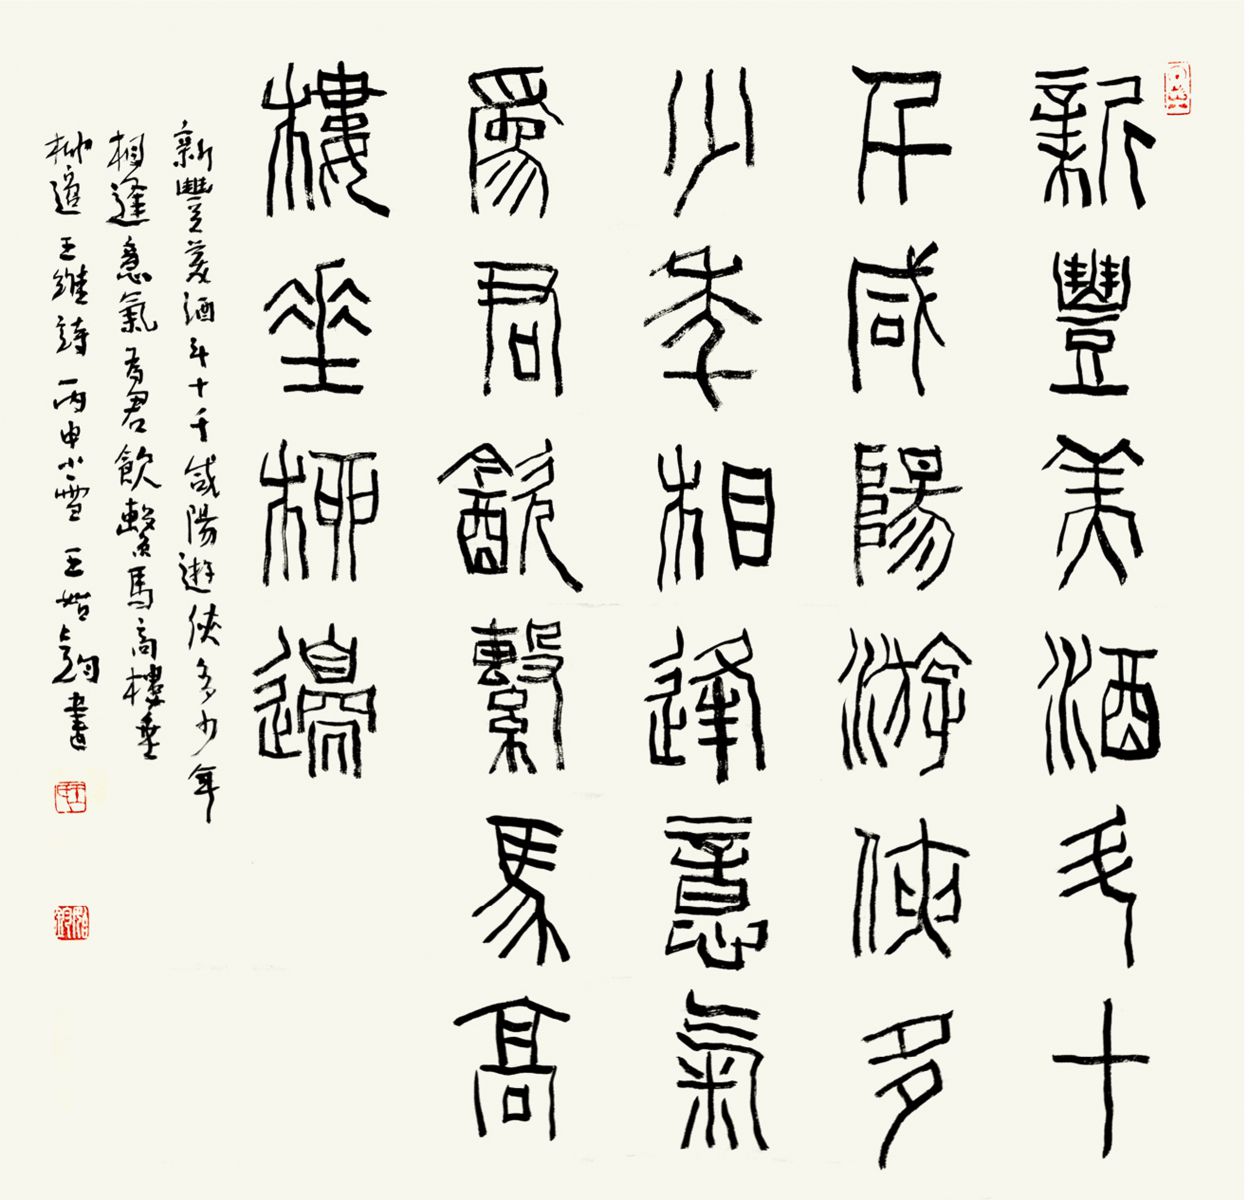 新豐美酒斗十
千咸陽游俠多
少年相逢意氣
爲君飲繫馬高
樓垂柳邊
新豐美酒斗十千咸陽遊俠多少年
相逢意氣為君飲繫馬高樓垂
柳邊 王維詩 丙申小雪 王書